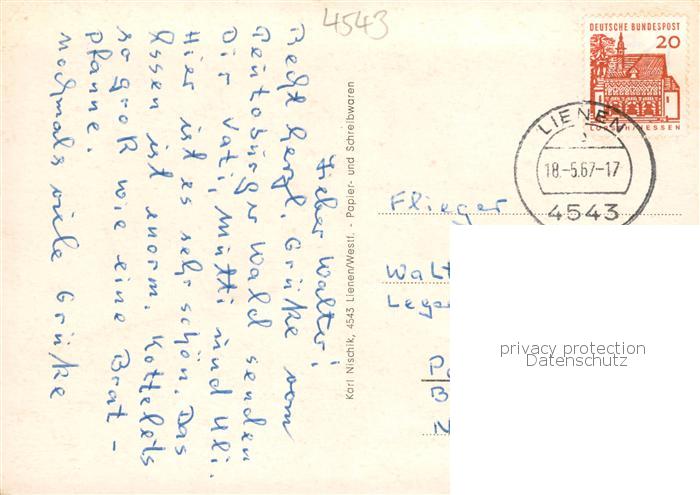 4543
DEUTSCHE BUNDESPOST
20
LORSCH/HESSEN
LIENEN
18.-5.67-17
4543
Lieber Walter!
Recht herzl. Grüße vom
Teutoburger Wald senden
Dir Vati, Mutti und Uli.
Hier ist es sehr schön. Das
Essen ist enorm. Kottelets
so groß wie eine Brat-
pfanne.
nochmals viele Grüße
Karl Nischik, 4543 Lienen/Westf. - Papier- und Schreibwaren
Flieger
Walt
privacy protection
Datenschutz